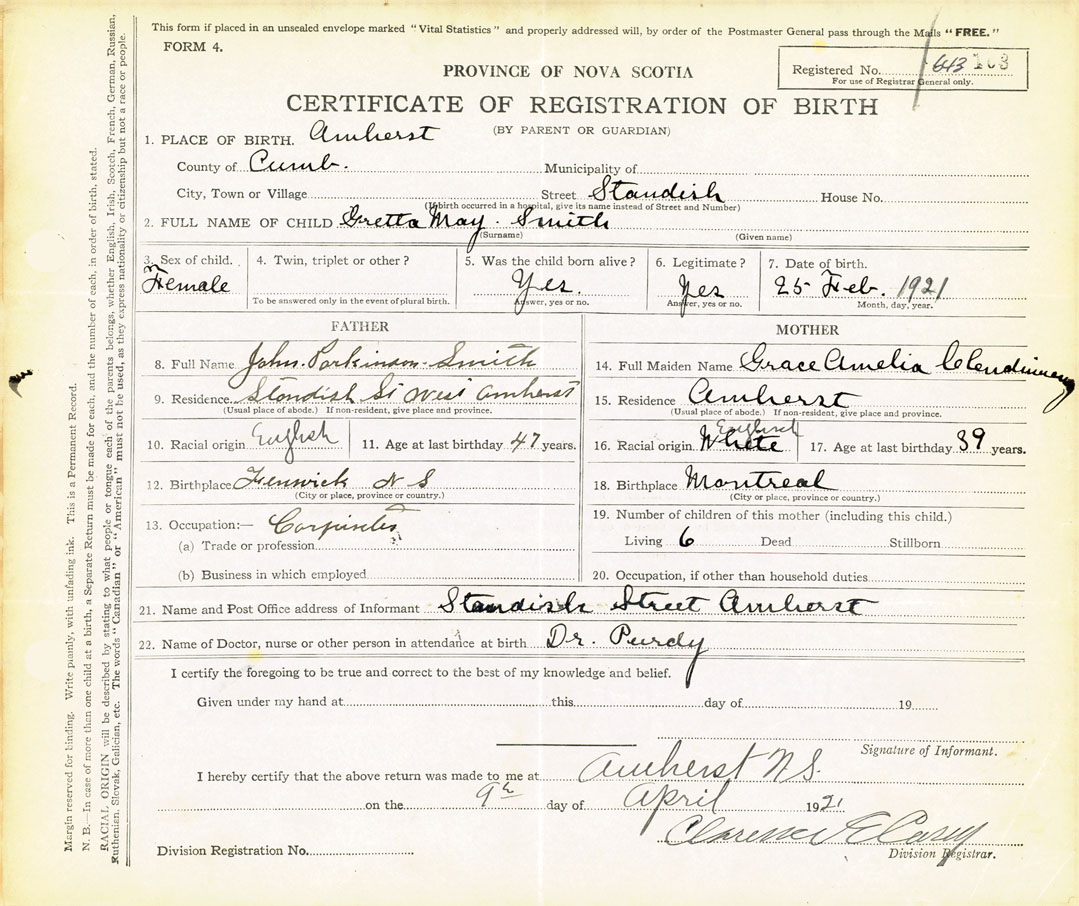 This form if placed in an unsealed envelope marked "Vital Statistics" and properly addressed will, by order of the Postmaster General pass through the Mails "FREE."
FORM 4.
PROVINCE OF NOVA SCOTIA
Registered No. 643 163
For use of Registrar General only.
CERTIFICATE OF REGISTRATION OF BIRTH
(BY PARENT OR GUARDIAN)
1. PLACE OF BIRTH. Amherst
County of Cumb. Municipality of
City, Town or Village Street Standish House No.
(If birth occurred in a hospital, give its name instead of Street and Number)
2. FULL NAME OF CHILD Gretta May. Smith
(Surname) (Given name)
3. Sex of child. Female
4. Twin, triplet or other?
To be answered only in the event of plural birth.
5. Was the child born alive? Yes.
Answer, yes or no.
6. Legitimate? Yes
Answer, yes or no.
7. Date of birth. 25 Feb. 1921
Month, day, year.
FATHER
8. Full Name John. Parkinson. Smith
9. Residence. Standish St West Amherst
(Usual place of abode.) If non-resident, give place and province.
10. Racial origin English 11. Age at last birthday 47 years.
12. Birthplace Fenwick N S
(City or place, province or country.)
13. Occupation:— Carpinter
(a) Trade or profession
(b) Business in which employed
MOTHER
14. Full Maiden Name Grace Amelia Clendinneng
15. Residence Amherst
(Usual place of abode.) If non-resident, give place and province.
16. Racial origin White English 17. Age at last birthday 39 years.
18. Birthplace Montreal
(City or place, province or country.)
19. Number of children of this mother (including this child.)
Living 6 Dead Stillborn
20. Occupation, if other than household duties
21. Name and Post Office address of Informant Standish Street Amherst
22. Name of Doctor, nurse or other person in attendance at birth Dr. Purdy
I certify the foregoing to be true and correct to the best of my knowledge and belief.
Given under my hand at this day of 19
Signature of Informant.
I hereby certify that the above return was made to me at Amherst N.S.
on the 9th day of April 1921
Clarence E Casey
Division Registrar.
Division Registration No.
Margin reserved for binding. Write plainly, with unfading ink. This is a Permanent Record.
N. B.—In case of more than one child at a birth, a Separate Return must be made for each, and the number of each, in order of birth, stated.
RACIAL ORIGIN will be described by stating to what people or tongue each of the parents belongs, whether English, Irish, Scotch, French, German, Russian,
Ruthenian, Slovak, Galician, etc. The words "Canadian" or "American" must not be used, as they express nationality or citizenship but not a race or people.